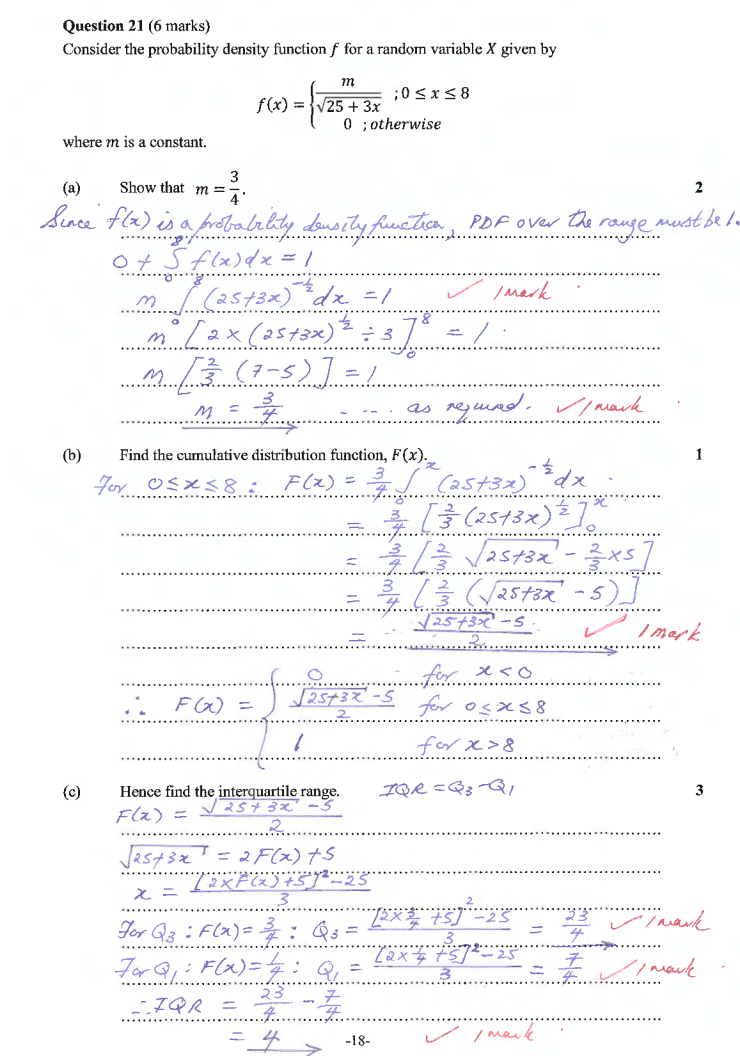 Question 21 (6 marks)
Consider the probability density function f for a random variable X given by
f(x) = { m/√(25 + 3x) ; 0 ≤ x ≤ 8
0 ; otherwise
where m is a constant.
(a) Show that m = 3/4. 2
Since f(x) is a probability density function, PDF over the range must be 1.
0 + ∫₀⁸ f(x)dx = 1
m ∫₀⁸ (25+3x)^(-1/2) dx = 1 ✓ 1 mark
m [2 × (25+3x)^(1/2) ÷ 3]₀⁸ = 1
m [2/3 (7-5)] = 1
m = 3/4 - ... as required. ✓ 1 mark
(b) Find the cumulative distribution function, F(x). 1
For 0 ≤ x ≤ 8 : F(x) = 3/4 ∫₀ˣ (25+3x)^(-1/2) dx
= 3/4 [2/3 (25+3x)^(1/2)]₀ˣ
= 3/4 [2/3 √(25+3x) - 2/3 × 5]
= 3/4 [2/3 (√(25+3x) - 5)]
= (√(25+3x) - 5)/2 ✓ 1 mark
0 for x < 0
∴ F(x) = { (√(25+3x) - 5)/2 for 0 ≤ x ≤ 8
1 for x > 8
(c) Hence find the interquartile range. IQR = Q₃ - Q₁ 3
F(x) = (√(25+3x) - 5)/2
√(25+3x) = 2F(x) + 5
x = ([2×F(x)+5]² - 25)/3
For Q₃ : F(x) = 3/4 : Q₃ = ([2×3/4 + 5]² - 25)/3 = 23/4 ✓ 1 mark
For Q₁ : F(x) = 1/4 : Q₁ = ([2×1/4 + 5]² - 25)/3 = 7/4 ✓ 1 mark
∴ IQR = 23/4 - 7/4
= 4 ✓ 1 mark
-18-